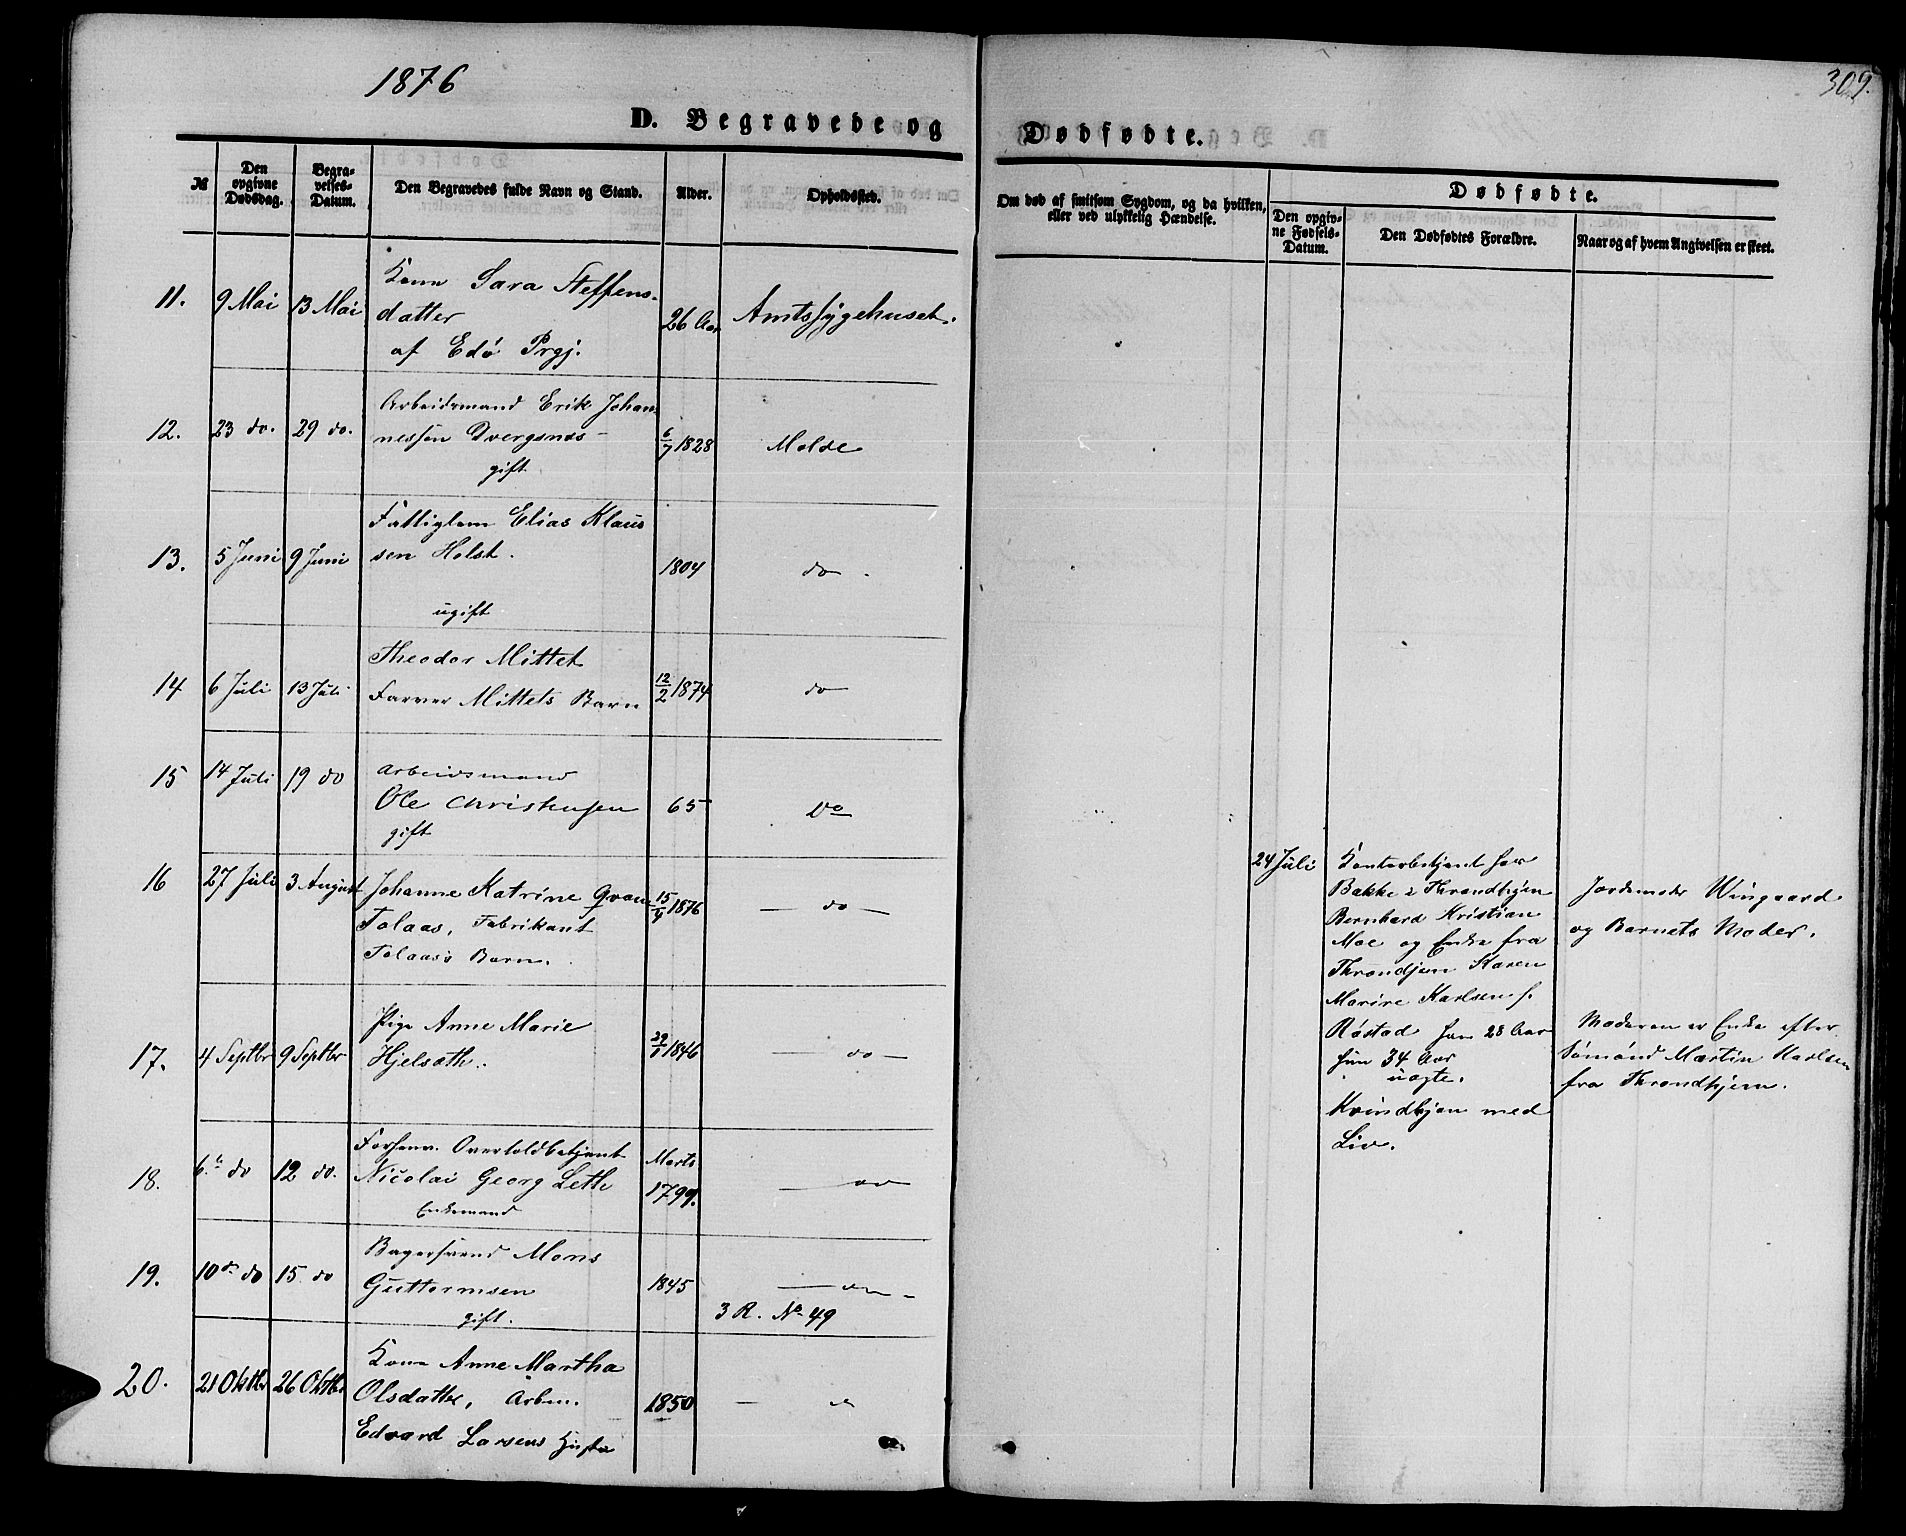 1876
309.
D. Begravede og Dødfødte.
№
Den opgivne Dødsdag.
Begravelses-Datum.
Den Begravedes fulde Navn og Stand.
Alder.
Opholdssted.
Om død af smitsom Sygdom, og da hvilken, eller ved ulykkelig Hændelse.
Dødfødte.
Den opgivne Fødsels-Datum.
Den Dødfødtes Forældre.
Naar og af hvem Angivelsen er skeet.
11. 9 Mai 13 Mai Kone Sara Steffens-
datter 26 Aar Amtssygehuset.
af Edø Prgj.
12. 23 do. 29 do. Arbeidsmand Erik Johan-
nessen Dvergsnes 6/7 1828 Molde
gift
13. 5 Juni 9 Juni Fattiglem Elias Klaus
sen Holst. 1804 do.
ugift
14 6 Juli 13 Juli Theodor Mittet
Farver Mittets Barn 12/2 1874 do
15 14 Juli 19 do Arbeidsmand
Ole Christensen 65 Do
gift
16 27 Juli 3 August Johanne Katrine Qvam 15/9 1876 — do —
Tolaas, Fabrikant
Tolaas's Barn.
17. 4 Septbr 9 Septbr Pige Anne Marie
Hjelsæth. 29/1 1846 — do —
18. 6te do 12 do. Forhenv. Overtoldbetjent
Nicolai Georg Leth Marts 1799. — do
Enkemand
19. 10de do 15 do Bagersvend Mons
Guttormsen 1845 — do —
gift. 3 R. No 49
20. 21 Oktbr 26 Oktbr Kone Anne Martha
Olsdatter, Arbm. 1850 — "
Edvard Larsens Hustru
24 Juli Kontorbetjent hos
Bakke i Throndhjem
Bernhard Kristian
Moe og Enke fra
Throndhjem Karen
Marine Karlsen f.
Røstad han 28 Aar
hun 34 Aar
uægte.
Kvindekjøn med
Liv.
Jordemoder Wingaard
og Barnets Moder.
Moderen er Enke efter
Sømand Martin Karlsen
fra Throndhjem.